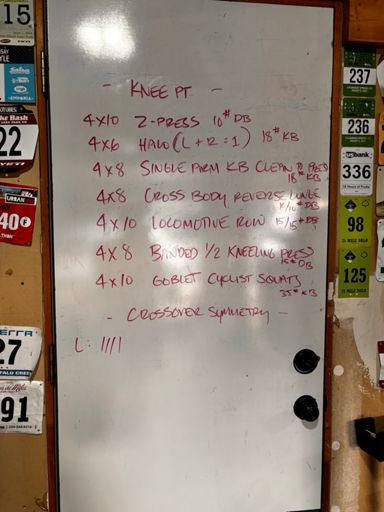 - KNEE PT -
4x10 Z-PRESS 10# DB
4x6 HALO (L + R = 1) 18# KB
4x8 SINGLE ARM KB CLEAN TO PRESS
18# KB
4x8 CROSS BODY REVERSE LUNGE
4x10 LOCOMOTIVE ROW 15/15# DB
4x8 BANDED 1/2 KNEELING PRESS
15# DB
4x10 GOBLET CYCLIST SQUATS
35# KB
- CROSSOVER SYMMETRY -
L: ||||
15
22
YETI
URBAN
40
27
91
237
236
usbank
336
98
125